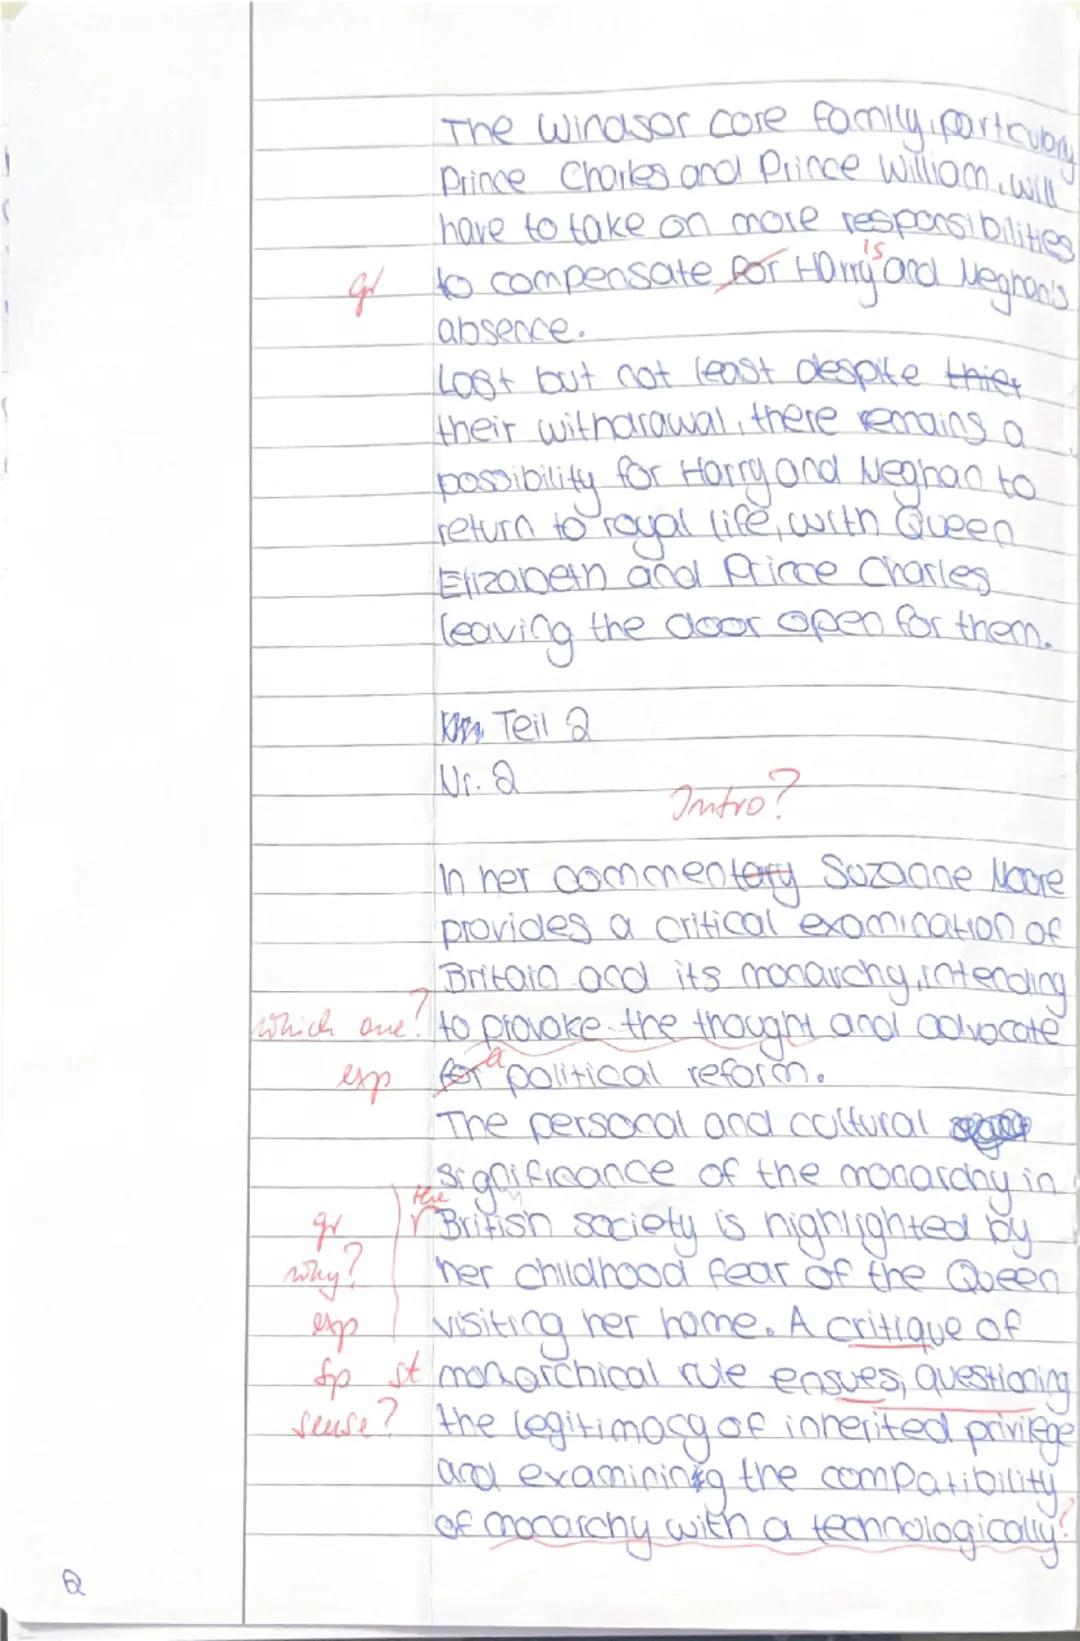 The Windsor core family, particulary
Prince Charles and Prince William, will
have to take on more responsibilities
is
gr to compensate for Harry and Meghan's
absence.
Last but not least despite thier
their withdrawal, there remains a
possibility for Harry and Meghan to
return to royal life, with Queen
Elizabeth and Prince Charles
leaving the door open for them.
Teil 2
Nr. 2
Intro?
In her commentary Suzanne Moore
provides a critical examination of
Britain and its monarchy, intending
which one? to provoke the thought and advocate
exp for a political reform.
The personal and cultural
significance of the monarchy in
the
gr British society is highlighted by
why? her childhood fear of the Queen
exp visiting her home. A critique of
sp st monarchical rule ensues, questioning
sense? the legitimacy of inherited privilege
and examining the compatibility
of monarchy with a technologically?
2